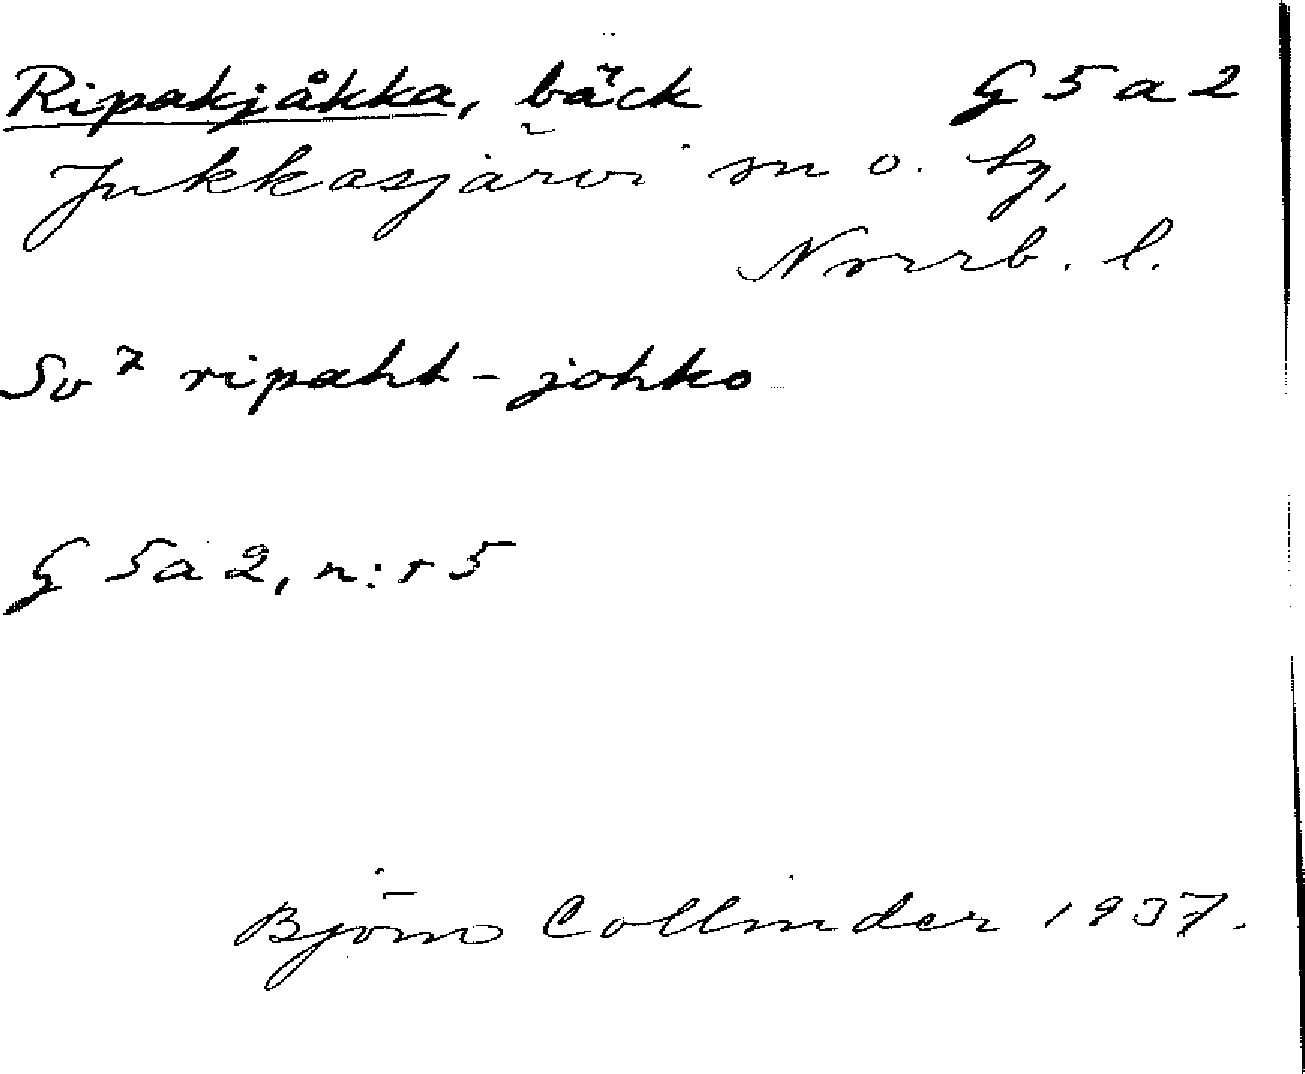 Ripakjåkka, bäck G 5 a 2
Jukkasjärvi sn o. by,
Norrb. l.
ripaht-johko
G 5 a 2, n:r 5
Björn Collinder 1937.